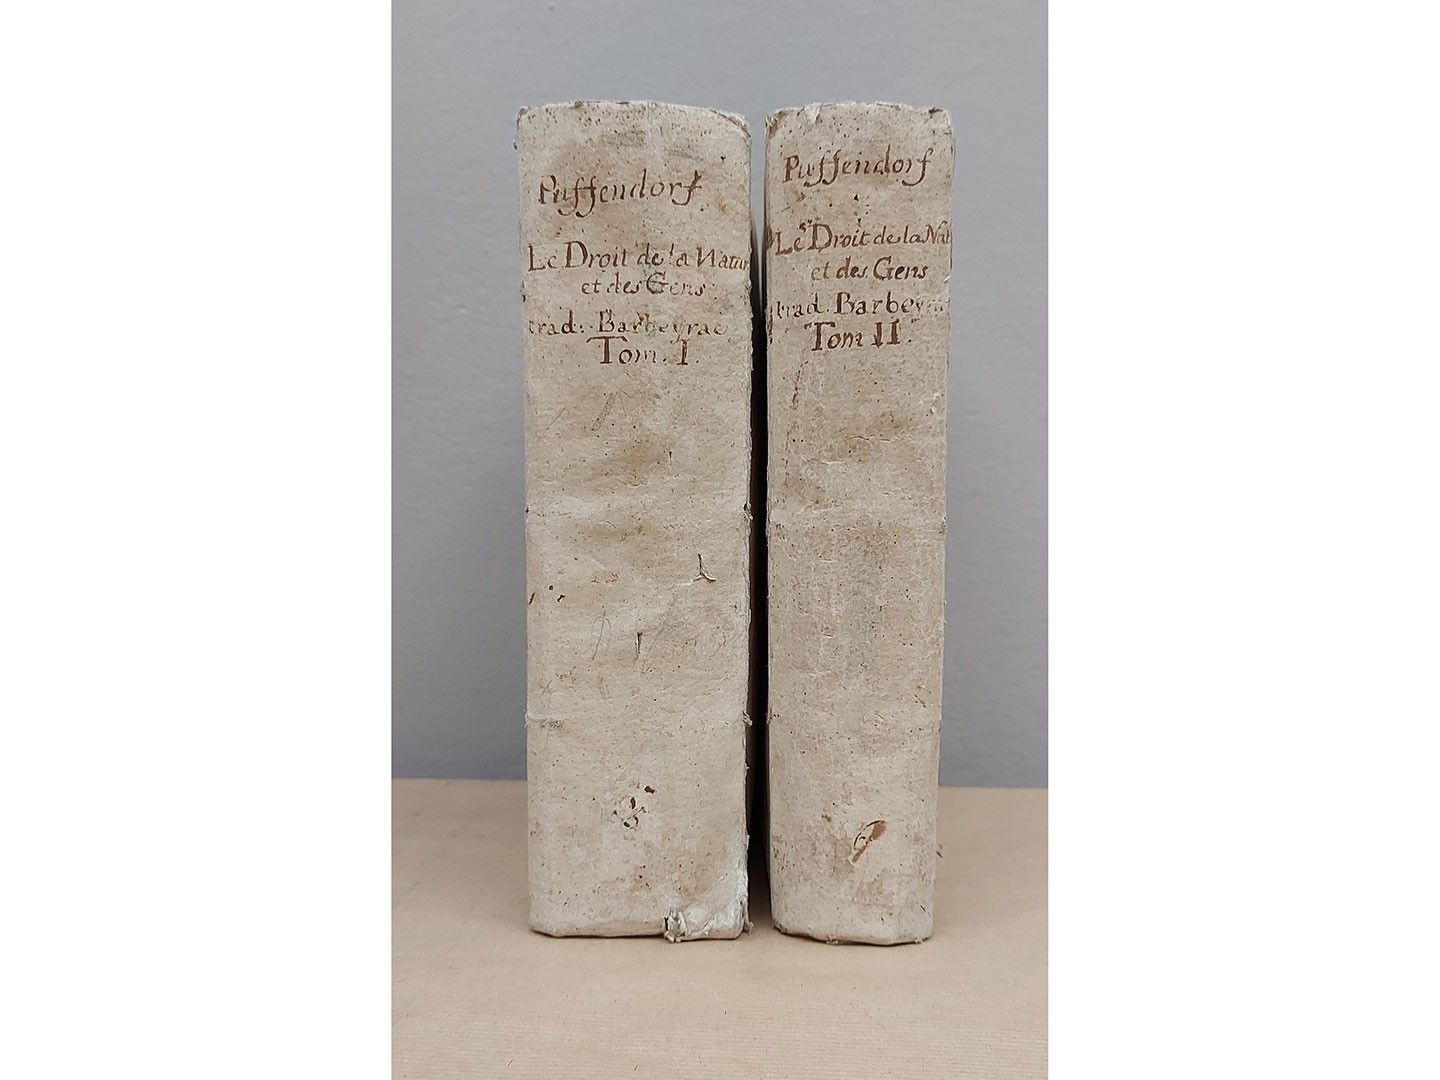 Puffendorf
Le Droit de la Natur
et des Gens
trad. Barbeyrac
Tom. I.
Puffendorf
Le Droit de la Nat
et des Gens
trad. Barbeyra
Tom II.